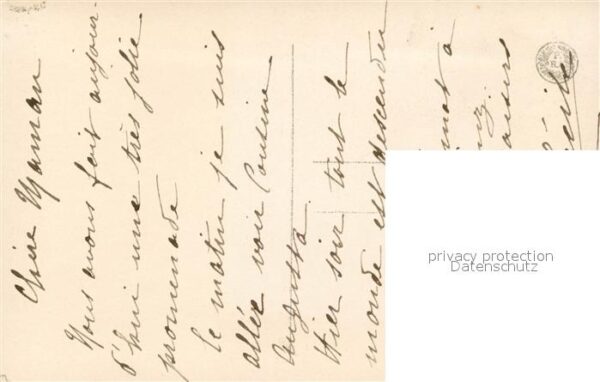 Chère Maman
Nous avons fait aujour-
d'hui une très jolie
promenade
le matin je suis
allée voir Cousine
Augusta.
Hier soir tout le
monde est descendu
à
privacy protection
Datenschutz